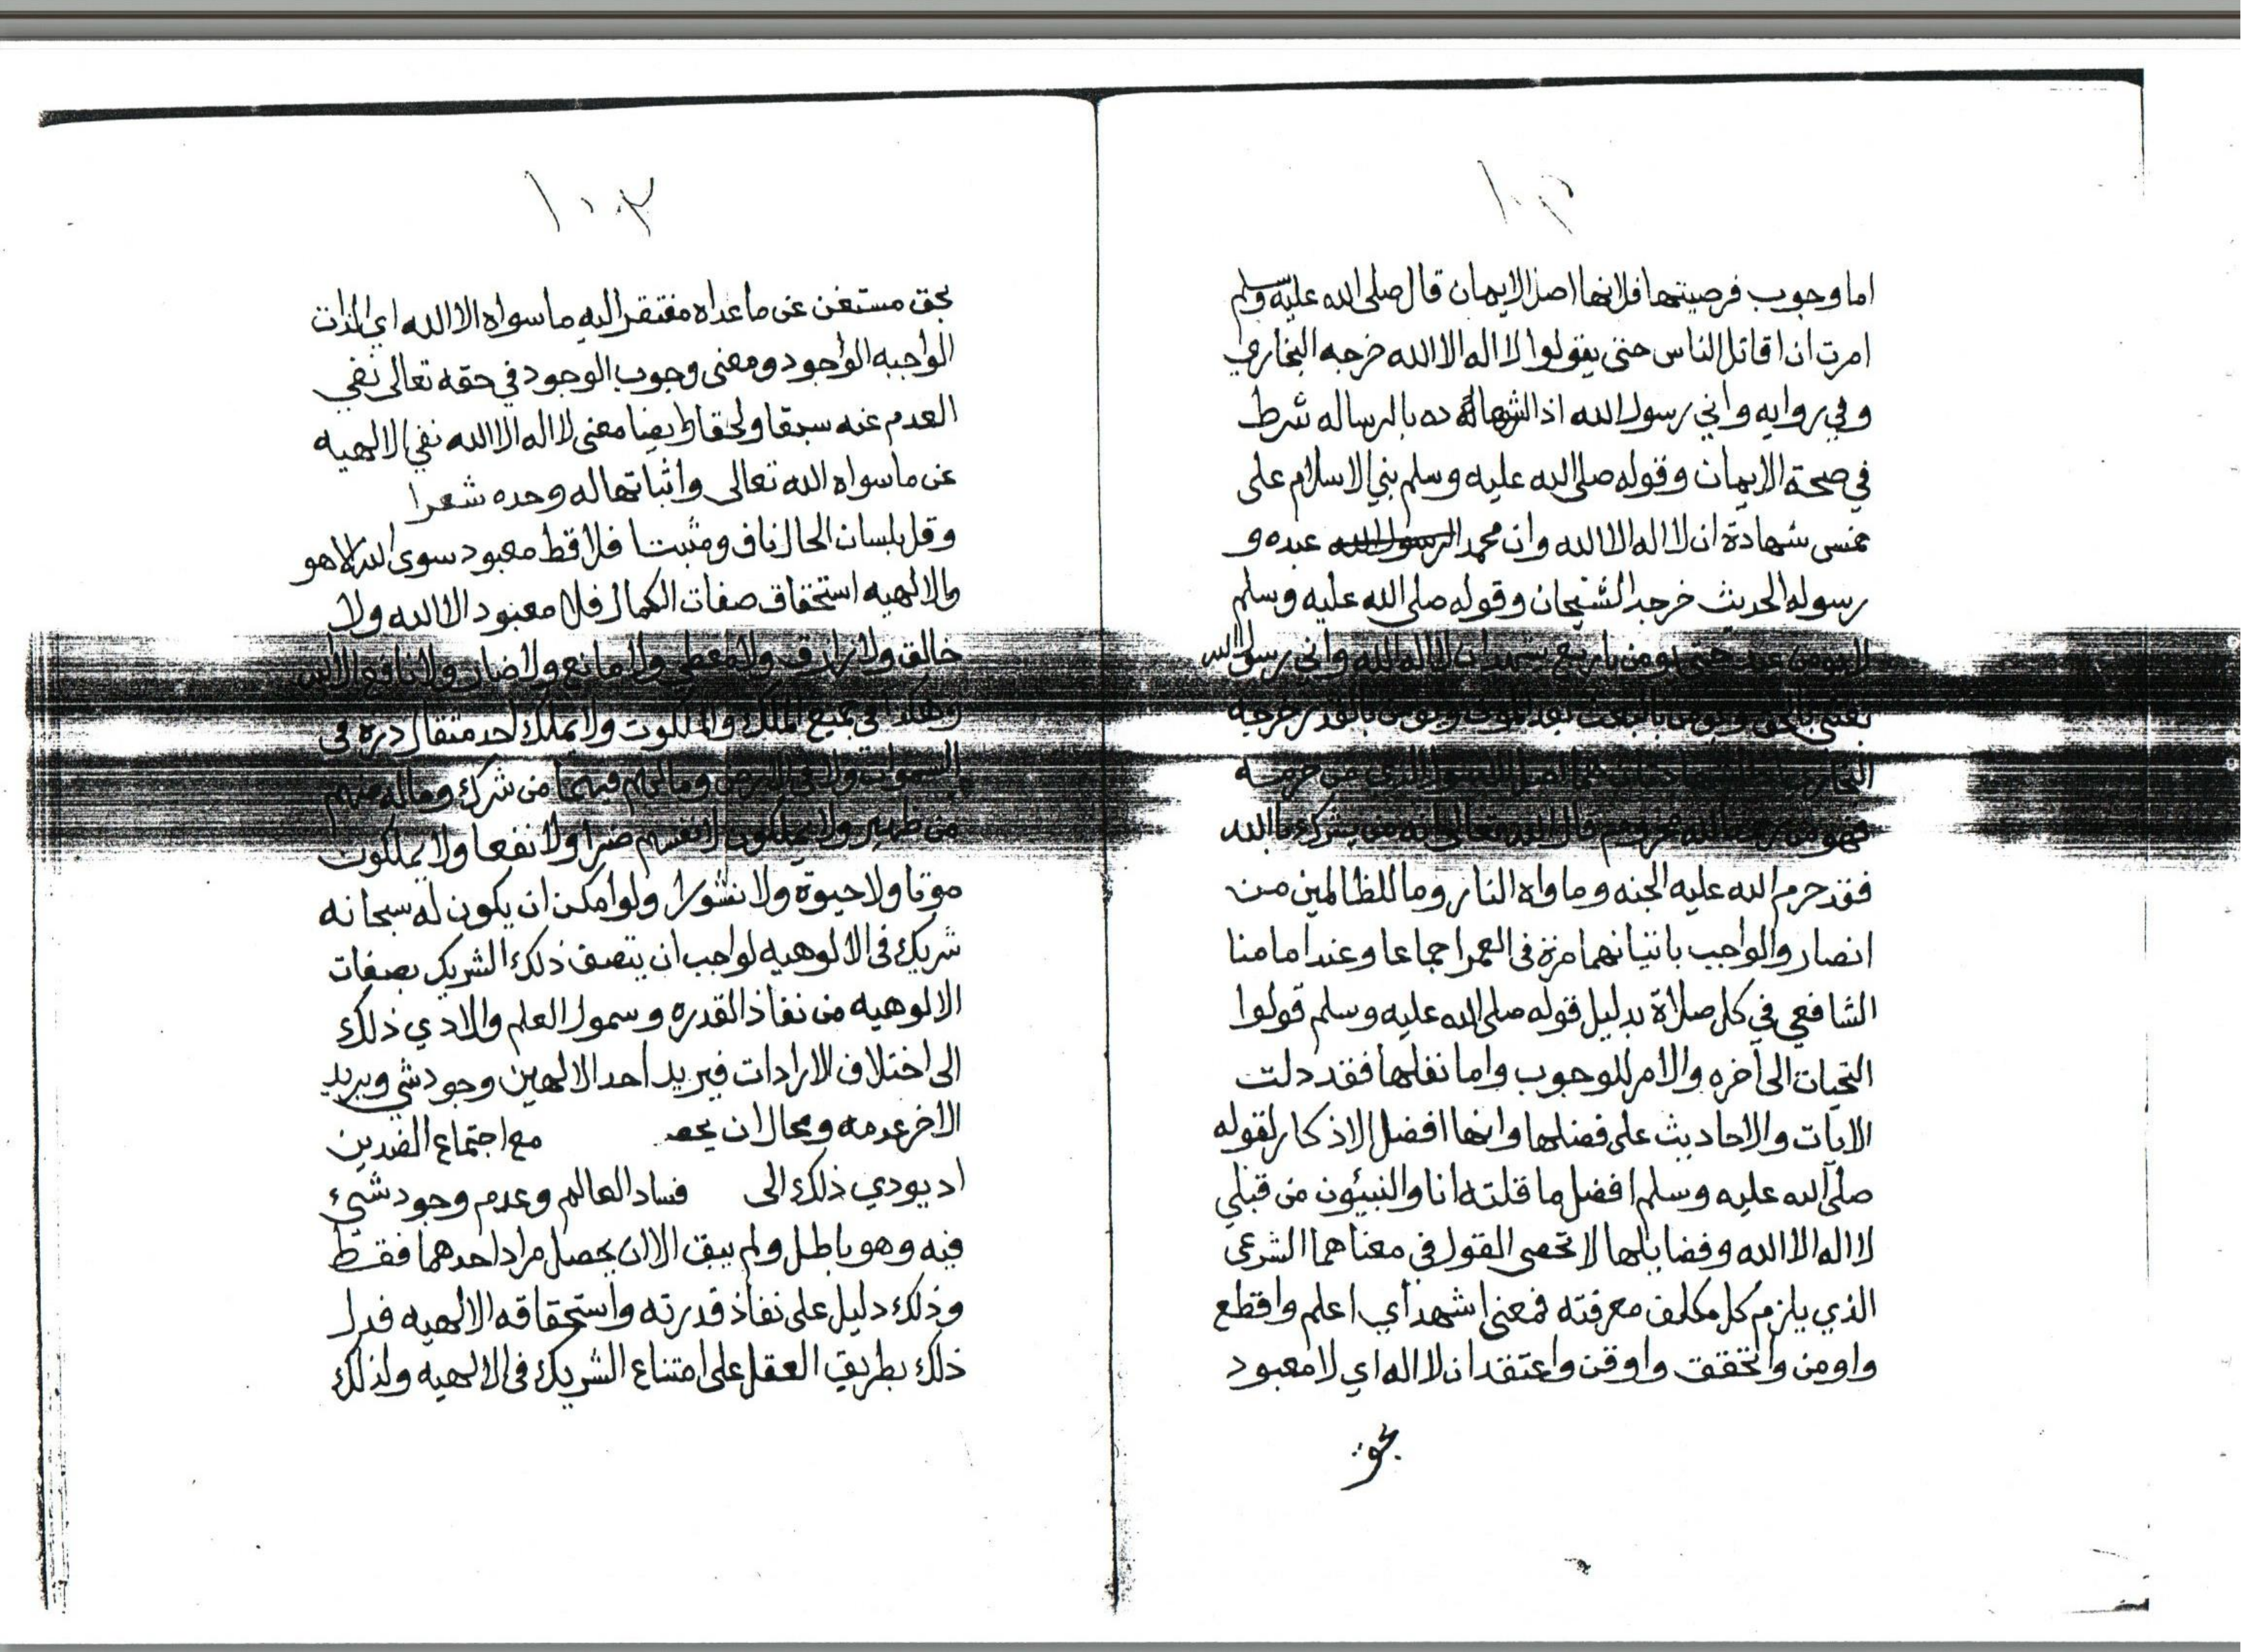 ١٠٢
اما وجوب فرضيتها فلانها اصل الايمان قال صلى الله عليه وسلم
امرت ان اقاتل الناس حتى يقولوا لا اله الا الله خرجه البخاري
وفي روايه واني رسول الله اذ الشهادة ده بالرساله شرط
في صحة الايمان وقوله صلى الله عليه وسلم بني الاسلام على
خمس شهادة ان لا اله الا الله وان محمد الرسول الله عبده و
رسوله الحديث خرجه الشيخان وقوله صلى الله عليه وسلم
لا يومن عبد حتى يومن باربع يشهد ان لا اله الا الله واني رسول الله
بعثني بالحق ويومن بالبعث بعد الموت ويومن بالقدر خرجه
من حرمه
فهو من قال الله تعالى انه من يشرك بالله
فقد حرم الله عليه الجنه وماواه النار وما للظالمين من
انصار والواجب باتيانهما مرة في العمر اجماعا وعند امامنا
الشافعي في كل صلاة بدليل قوله صلى الله عليه وسلم قولوا
التحيات الى آخره والامر للوجوب واما نفلها فقد دلت
الايات والاحاديث على فضلها وانها افضل الاذكار لقوله
صلى الله عليه وسلم افضل ما قلته انا والنبيئون من قبلي
لا اله الا الله وفضايلها لا تحصى القول في معناهما الشرعي
الذي يلزم كل مكلف معرفته فمعنى اشهد أي اعلم واقطع
واومن واتحقق واوقن واعتقد ان لا اله اي لا معبود
بحق
١٠٣
بحق مستغن عن ما عداه مفتقر اليه ما سواه الا الله اي الذات
الواجبه الوجود ومعنى وجوب الوجود في حقه تعالى نفي
العدم عنه سبقا ولحقا وايضا معنى لا اله الا الله نفي الالهيه
عن ما سواه الله تعالى واثباتها له وحده شعرا
وقل بلسان الحال ناف ومثبتا فلا قط معبود سوى الله الا هو
والالهيه استحقاق صفات الكمال فلا معبود الا الله ولا
خالق ولا رازق ولا معطي ولا مانع ولا ضار ولا نافع الا الله
وهكذا في جميع الملك والملكوت ولا يملك احد مثقال دره في
السموات ولا في الارض وما لهم فيهما من شرك وماله منهم
من ظهير ولا يملكون لانفسهم ضرا ولا نفعا ولا يملكون
موتا ولا حيوة ولا نشورا ولو امكن ان يكون له سبحانه
شريك في الالوهيه لواجب ان يتصف ذلك الشريك بصفات
الالوهيه من نفاذ القدره وسمول العلم والادي ذلك
الى اختلاف الارادات فيريد احد الالهين وجود شي ويريد
الاخر عدمه ومحال ان يحصـ مع اجتماع الضدين
اد يودي ذلك الى فساد العالم وعدم وجود شيء
فيه وهو باطل ولم يبق الا ان يحصل مراد احدهما فقط
وذلك دليل على نفاذ قدرته واستحقاقه الالهيه فدل
ذلك بطريق العقل على امتناع الشريك في الالهيه ولذلك